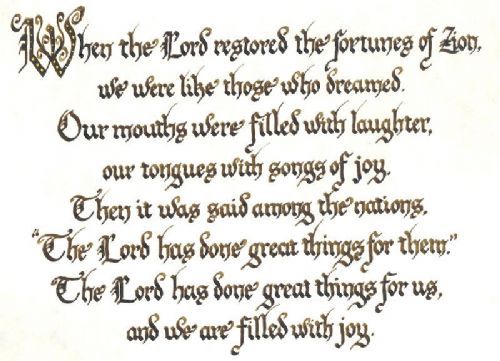 When the Lord restored the fortunes of Zion,
we were like those who dreamed.
Our mouths were filled with laughter,
our tongues with songs of joy.
Then it was said among the nations,
"The Lord has done great things for them."
The Lord has done great things for us,
and we are filled with joy.